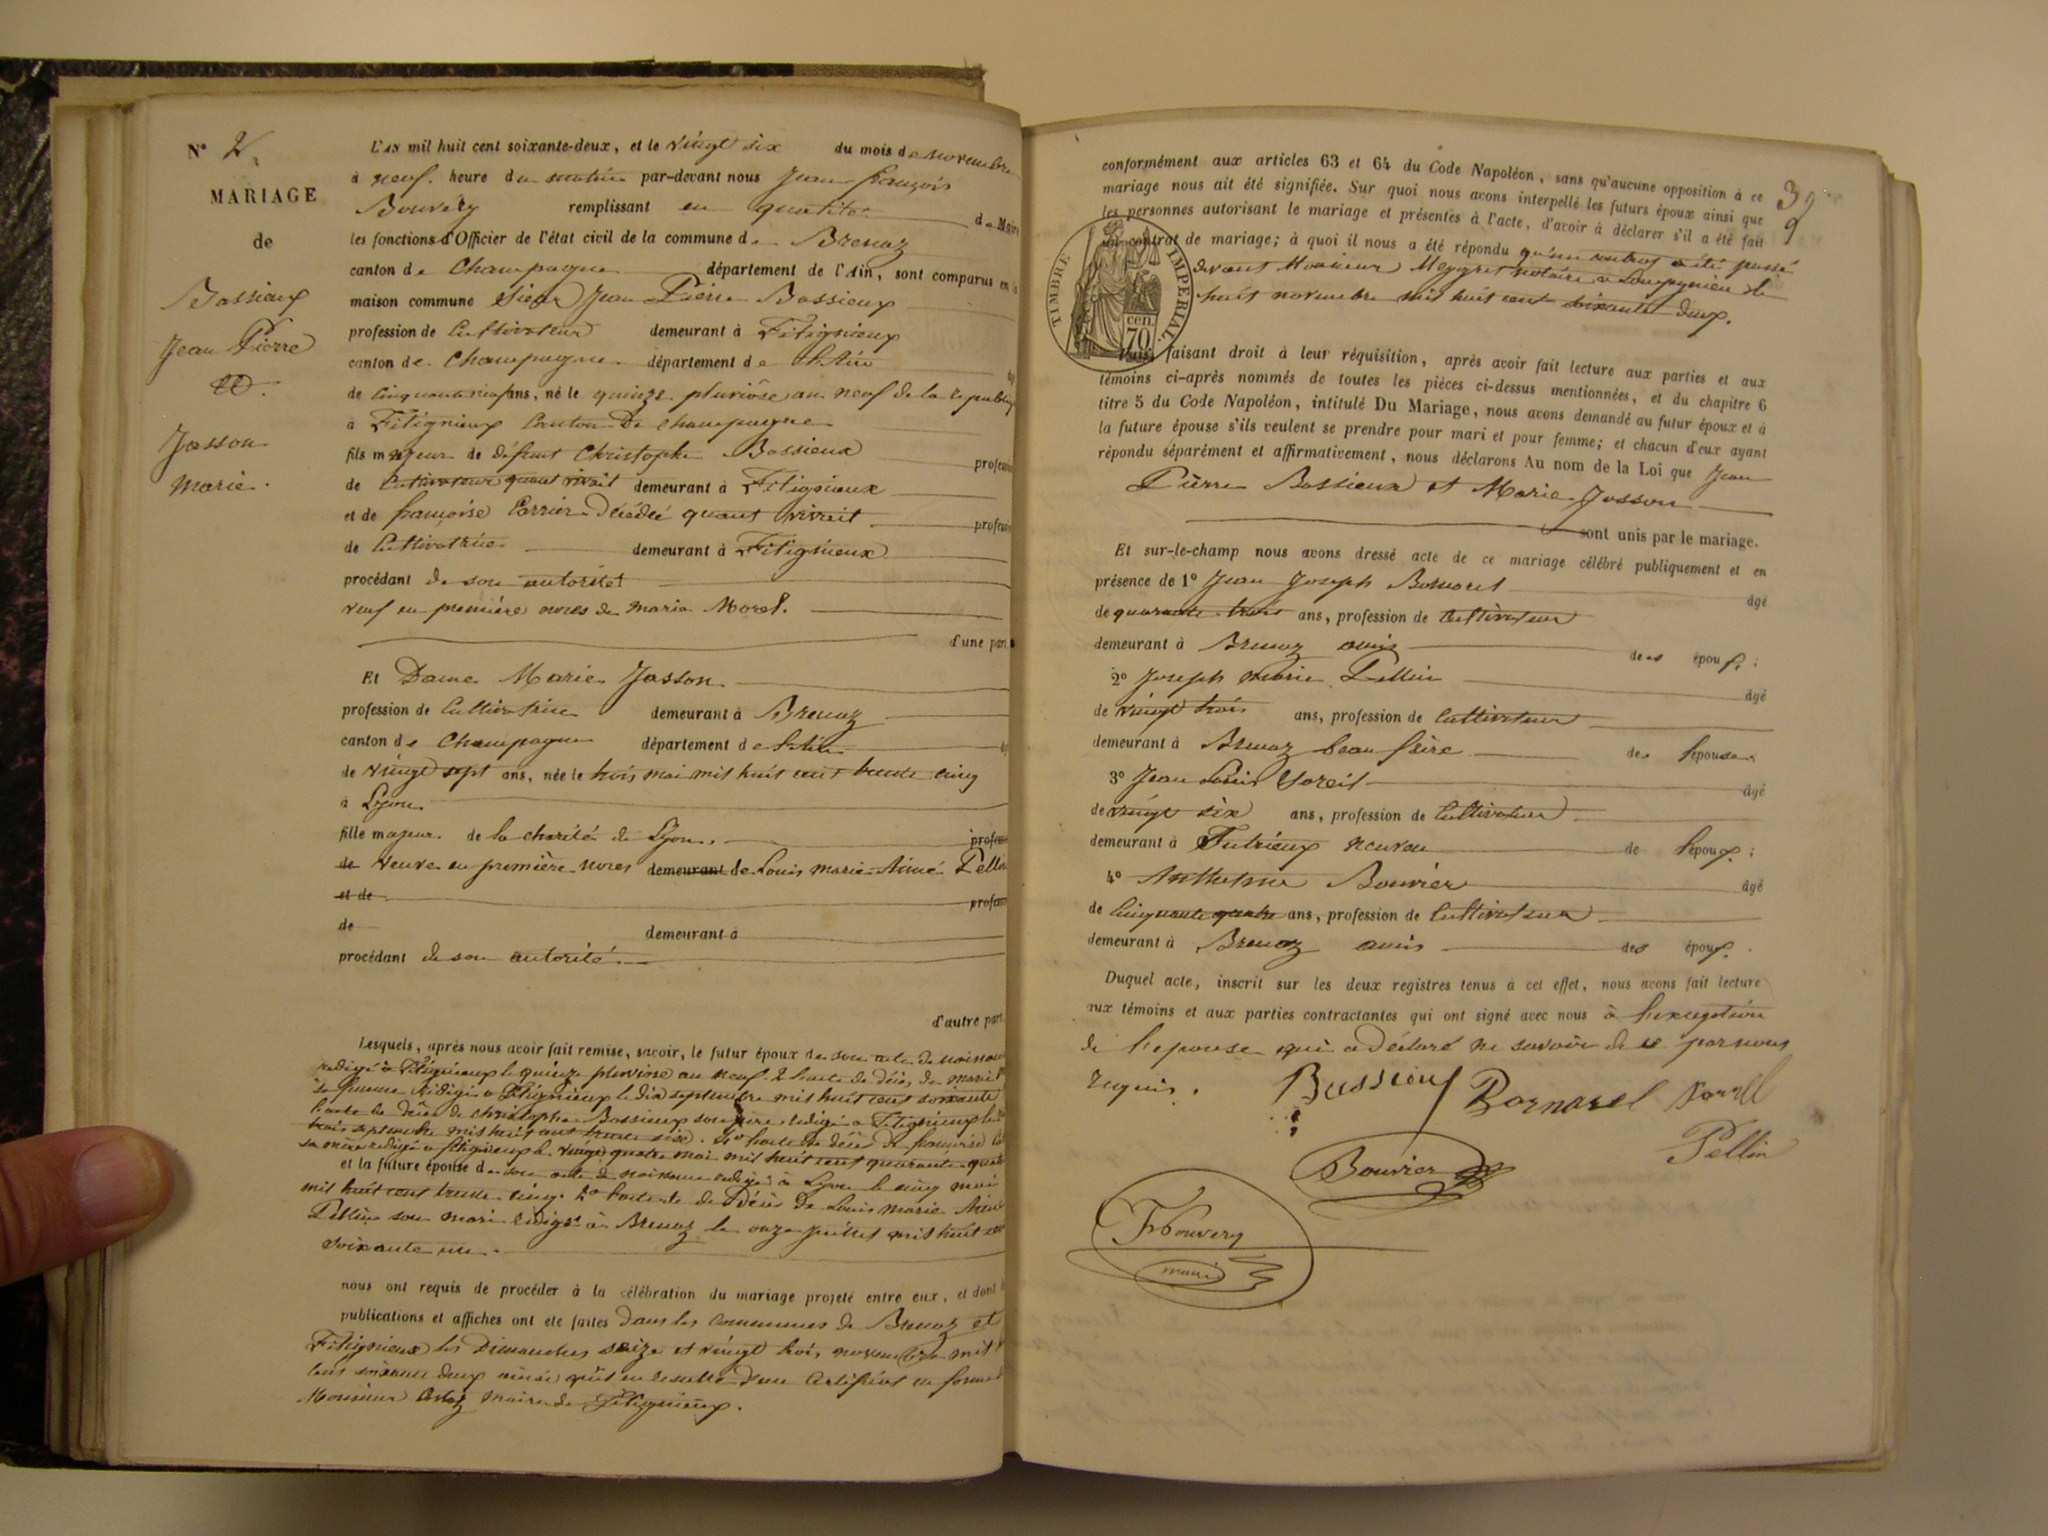 N° 2.
MARIAGE
de
Bossieux
Jean Pierre
et
Josson
Marie.
L'AN mil huit cent soixante-deux, et le vingt six du mois de novembre
à neuf heure du matin par-devant nous Jean françois
Bouvery remplissant en qualité de Maire
les fonctions d'Officier de l'état civil de la commune de Brenaz
canton de Champagne département de l'Ain, sont comparus en la
maison commune sieur Jean Pierre Bossieux
profession de Cultivateur demeurant à Fitignieux
canton de Champagne département de l'Ain
de cinquante neuf ans, né le quinze pluviôse an neuf de la republique
à Fitignieux Canton de Champagne
fils majeur de défunt Christophe Bossieux profession
de Cultivateur quant vivait demeurant à Fitignieux
et de françoise Carrier Décédée quant vivait profession
de Cultivatrice demeurant à Fitignieux
procédant de son autorité
veuf en première noces de maria Morel.
d'une part
Et Dame Marie Josson
profession de Cultivatrice demeurant à Brenaz
canton de Champagne département de l'Ain
de vingt sept ans, née le trois mai mil huit cent trente cinq
à Lyon
fille majeur de la charité de Lyon. profession
de veuve en première noces demeurant de Louis marie Aimé Pellin
et de profession
de demeurant à
procédant de son autorité
d'autre part.
Lesquels, après nous avoir fait remise, savoir, le futur époux de son acte de naissance
redigé à Fitignieux le quinze pluviose an neuf. 2 l'acte de décès de marie
sa femme redigé à Fitignieux le dix septembre mil huit cent soixante
l'acte de décès de christophe Bossieux son père redigé à Fitignieux le
trois septembre mil huit cent trente six. 4° l'acte de décès de françoise
sa mère redigé à fitignieux le vingt quatre mai mil huit cent quarante quatre
et la future épouse de son acte de naissance redigé à Lyon le cinq mai
mil huit cent trente cinq. 2° l'acte de Décès de Louis marie Aimé
Pellin son mari redigé à Brenaz le onze juillet mil huit cent
soixante un.
nous ont requis de procéder à la célébration du mariage projeté entre eux, et dont
publications et affiches ont été faites dans les communes de Brenaz et
Fitignieux les Dimanches seize et vingt trois novembre mil
cent soixante deux ainsi qu'il en resulte d'un certificat en forme
Monsieur maire de Fitignieux.
39
conformément aux articles 63 et 64 du Code Napoléon, sans qu'aucune opposition à ce
mariage nous ait été signifiée. Sur quoi nous avons interpellé les futurs époux ainsi que
les personnes autorisant le mariage et présentes à l'acte, d'avoir à déclarer s'il a été fait
un contrat de mariage; à quoi il nous a été répondu qu'un contrat a été passé
devant Monsieur notaire à le
huit novembre mil huit cent soixante deux.
TIMBRE IMPÉRIAL
70 cen.
Nous faisant droit à leur réquisition, après avoir fait lecture aux parties et aux
témoins ci-après nommés de toutes les pièces ci-dessus mentionnées, et du chapitre 6
titre 5 du Code Napoléon, intitulé Du Mariage, nous avons demandé au futur époux et à
la future épouse s'ils veulent se prendre pour mari et pour femme; et chacun d'eux ayant
répondu séparément et affirmativement, nous déclarons Au nom de la Loi que Jean
Pierre Bossieux et Marie Josson
sont unis par le mariage.
Et sur-le-champ nous avons dressé acte de ce mariage célébré publiquement et en
présence de 1° Jean Joseph Bornarel âgé
de quarante trois ans, profession de Cultivateur
demeurant à Brenaz amis des époux;
2° Joseph marie Pellin âgé
de vingt trois ans, profession de Cultivateur
demeurant à Brenaz beau frère de l'épouse;
3° Jean Louis Soreil âgé
de vingt six ans, profession de Cultivateur
demeurant à neveu de l'époux;
4° Anthelme Bouvier âgé
de Cinquante quatre ans, profession de Cultivateur
demeurant à Brenaz amis des époux.
Duquel acte, inscrit sur les deux registres tenus à cet effet, nous avons fait lecture
aux témoins et aux parties contractantes qui ont signé avec nous à l'exception
de l'epouse qui a déclaré ne savoir de ce par nous
requis. Bossieux Bornarel
Pellin
Bouvier
Bouvery
maire